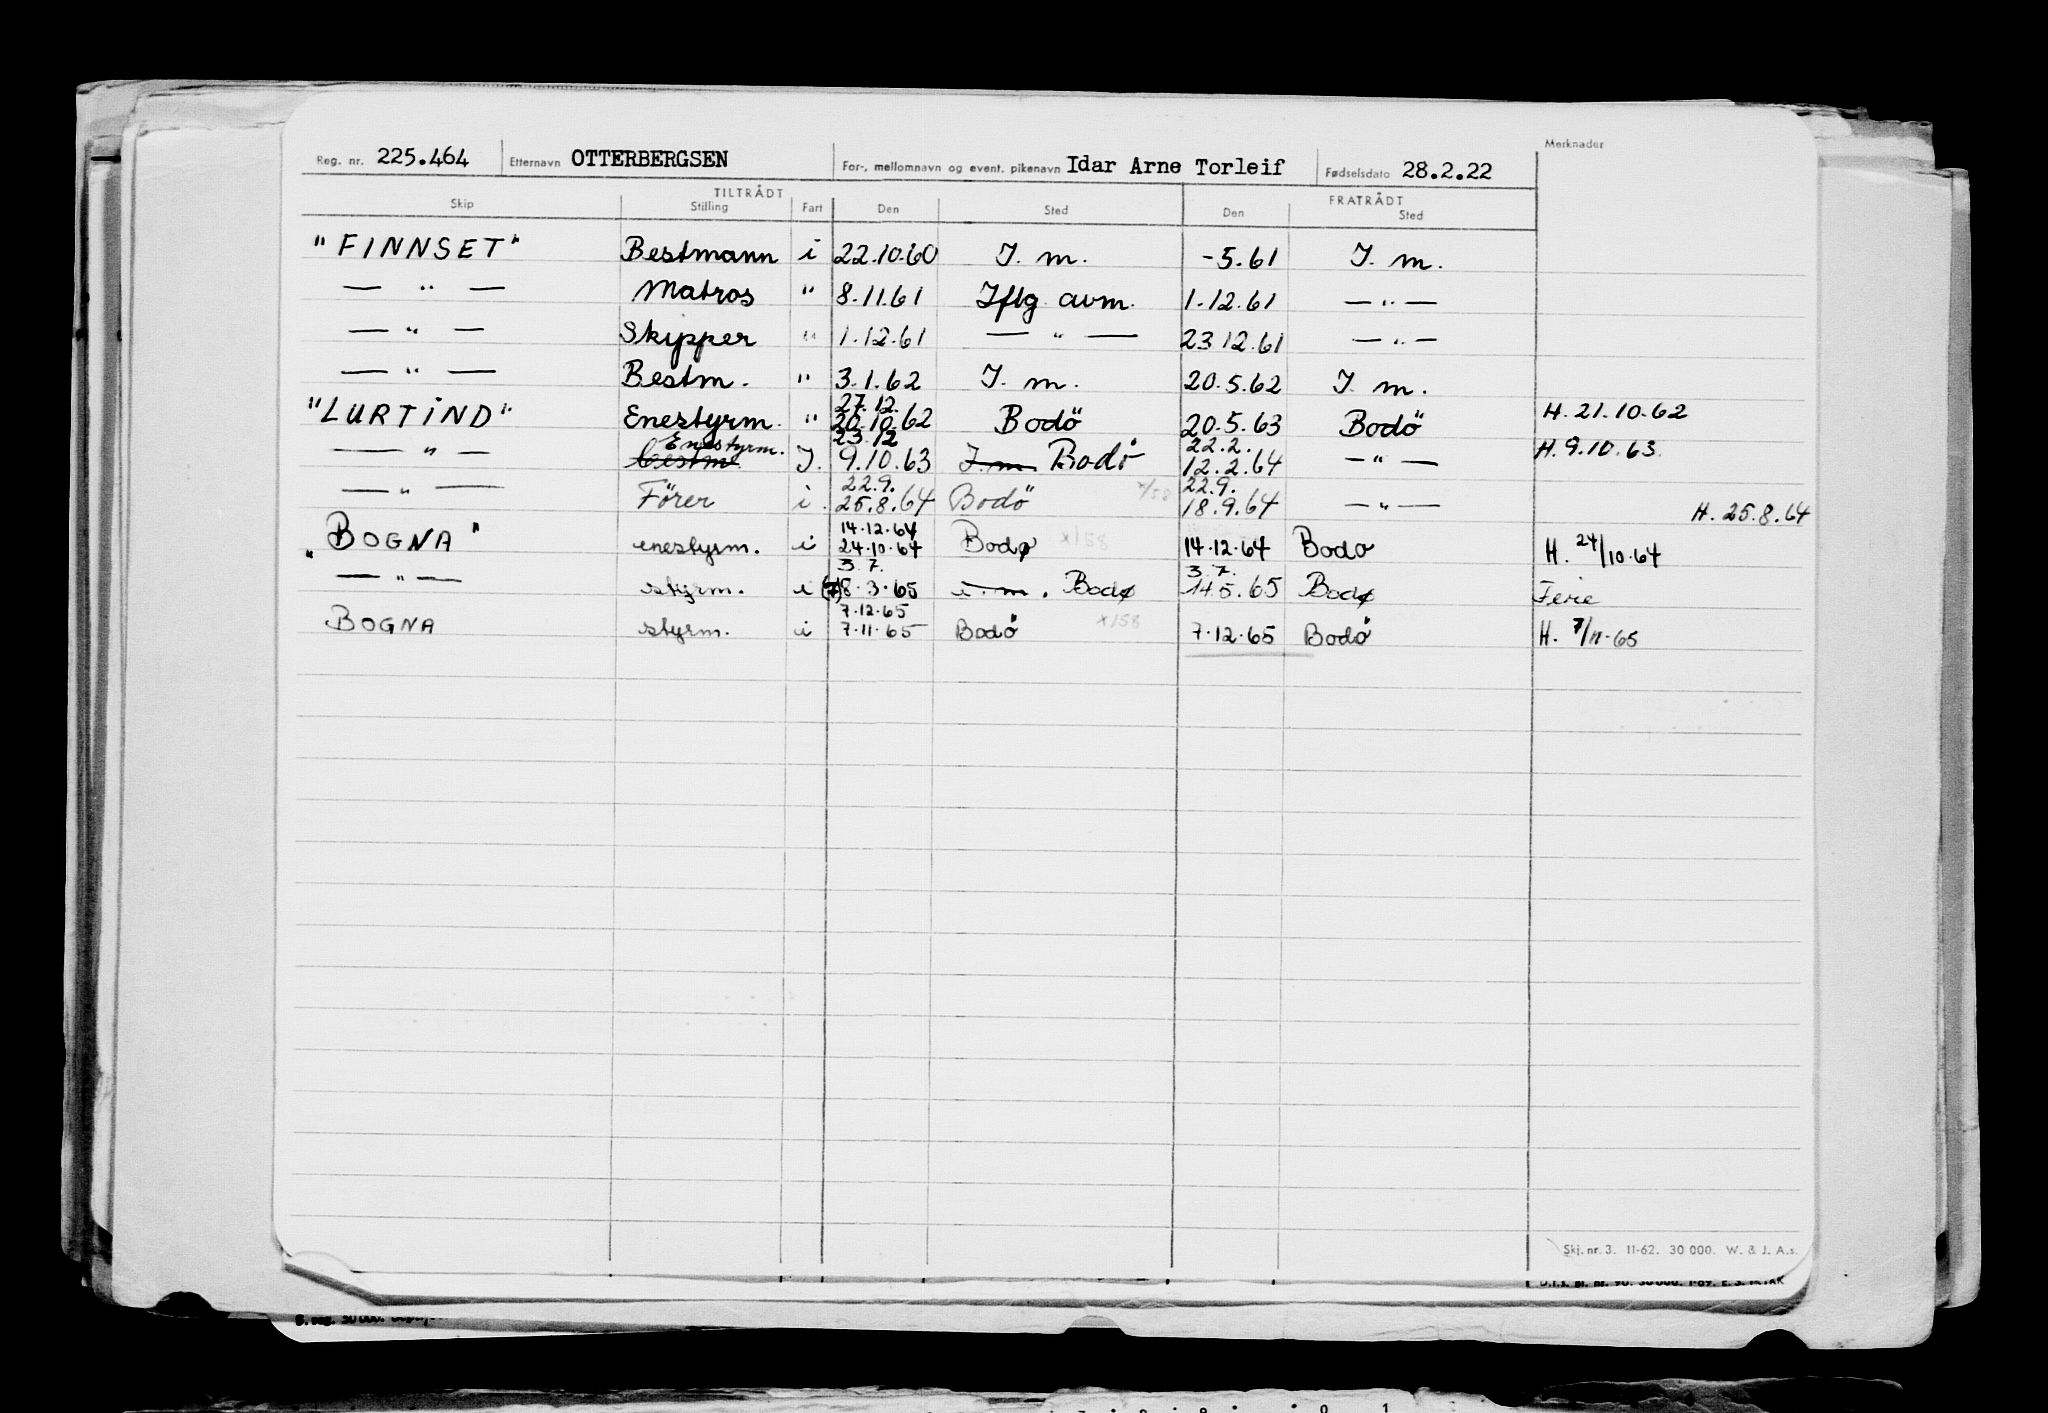 Reg. nr. 225.464 Etternavn OTTERBERGSEN For-, mellomnavn og event. pikenavn Idar Arne Torleif Fødselsdato 28.2.22 Merknader
TILTRÅDT FRATRÅDT
Skip Stilling Fart Den Sted Den Sted
"FINNSET" Bestmann i 22.10.60 I. m. -5.61 I. m.
— " — Matros " 8.11.61 Iflg avm. 1.12.61 — " —
— " — Skipper " 1.12.61 — " — 23 12.61 — " —
— " — Bestm. " 3.1.62 I. m. 20.5.62 I. m.
27.12.
"LURTIND" Enestyrm. " 20.10.62 Bodö 20.5.63 Bodö H. 21.10.62
Enestyrm. 23.12 22.2.
— " — Bestm. I. 9.10.63 I. m. Bodö 12.2.64 — " — H. 9.10.63.
22.9. 22.9.
— " — Förer i. 25.8.64 Bodö x/58 18.9.64 — " — H. 25.8.64
14.12.64
"BOGNA" enestyrm. i 24.10.64 Bodø x/58 14.12.64 Bodo H. 24/10.64
3.7. 3.7.
— " — styrm. i 8.3.65 i. m. Bodø 14.5.65 Bodø Ferie
7.12.65
BOGNA styrm. i 7.11.65 Bodö x/58 7.12.65 Bodö H. 7/11-65
Skj. nr. 3. 11-62. 30 000. W. & J. A.s.